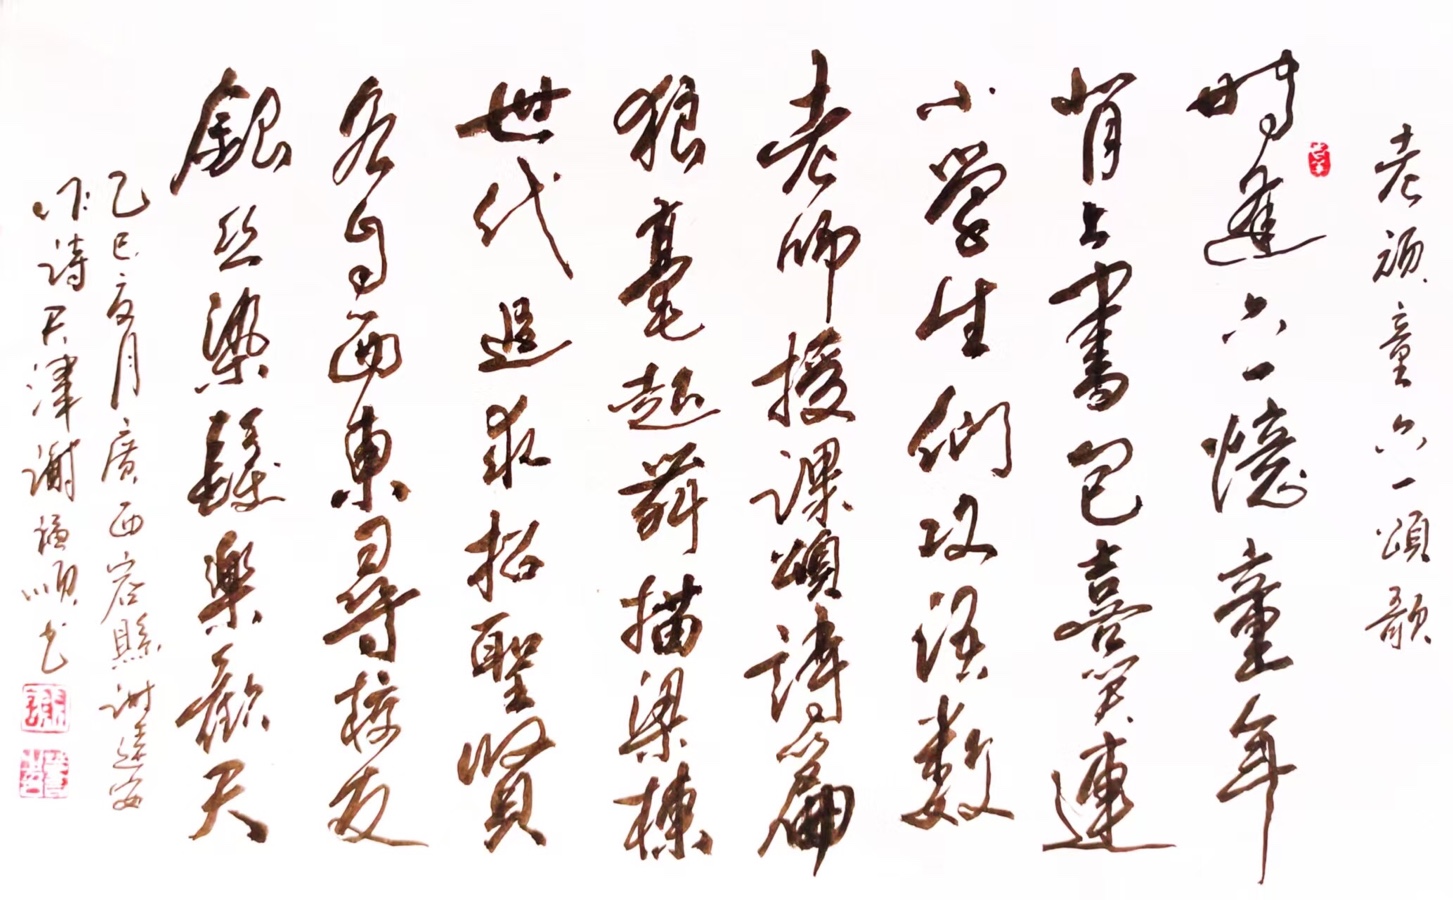 老頑童六一頌歌
時逢六一憶童年
背上書包喜笑連
小學生們攻語数
老師授課頌詩篇
狼毫起舞描梁棟
世代追求招聖賢
各自西東尋校友
銀絲染鬓樂歡天
乙巳夏月廣西容縣謝安
作詩天津謝順书